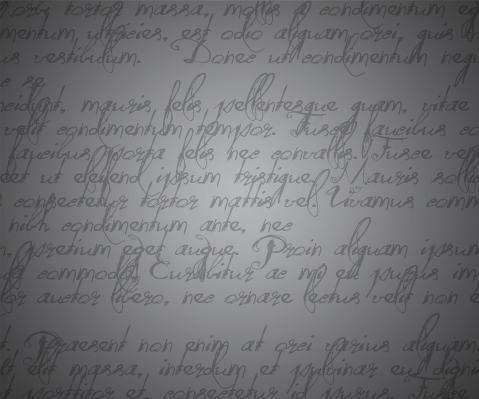 tortor massa, mollis a condimentum
mentum ultricies, est odio aliquam orci, quis
us vestibulum. Donec ut condimentum nequ
e se
mauris felis pellentesque quam, vitae
velit condimentum tempor. Fusce faucibus
faucibus porta felis nec convallis. Fusce
eet ut eleifend ipsum tristique. Mauris
consectetur tortor mattis vel. Vivamus comm
nibh condimentum ante, nec
pretium eget augue. Proin aliquam ipsum
commodo. Curabitur ac mi eu purus im
lor auctor libero, nec ornare lectus velit non
t. Praesent non enim at orci varius aliquam.
elit massa, interdum et pulvinar eu, digni
porttitor et, consectetur id purus. Fusce